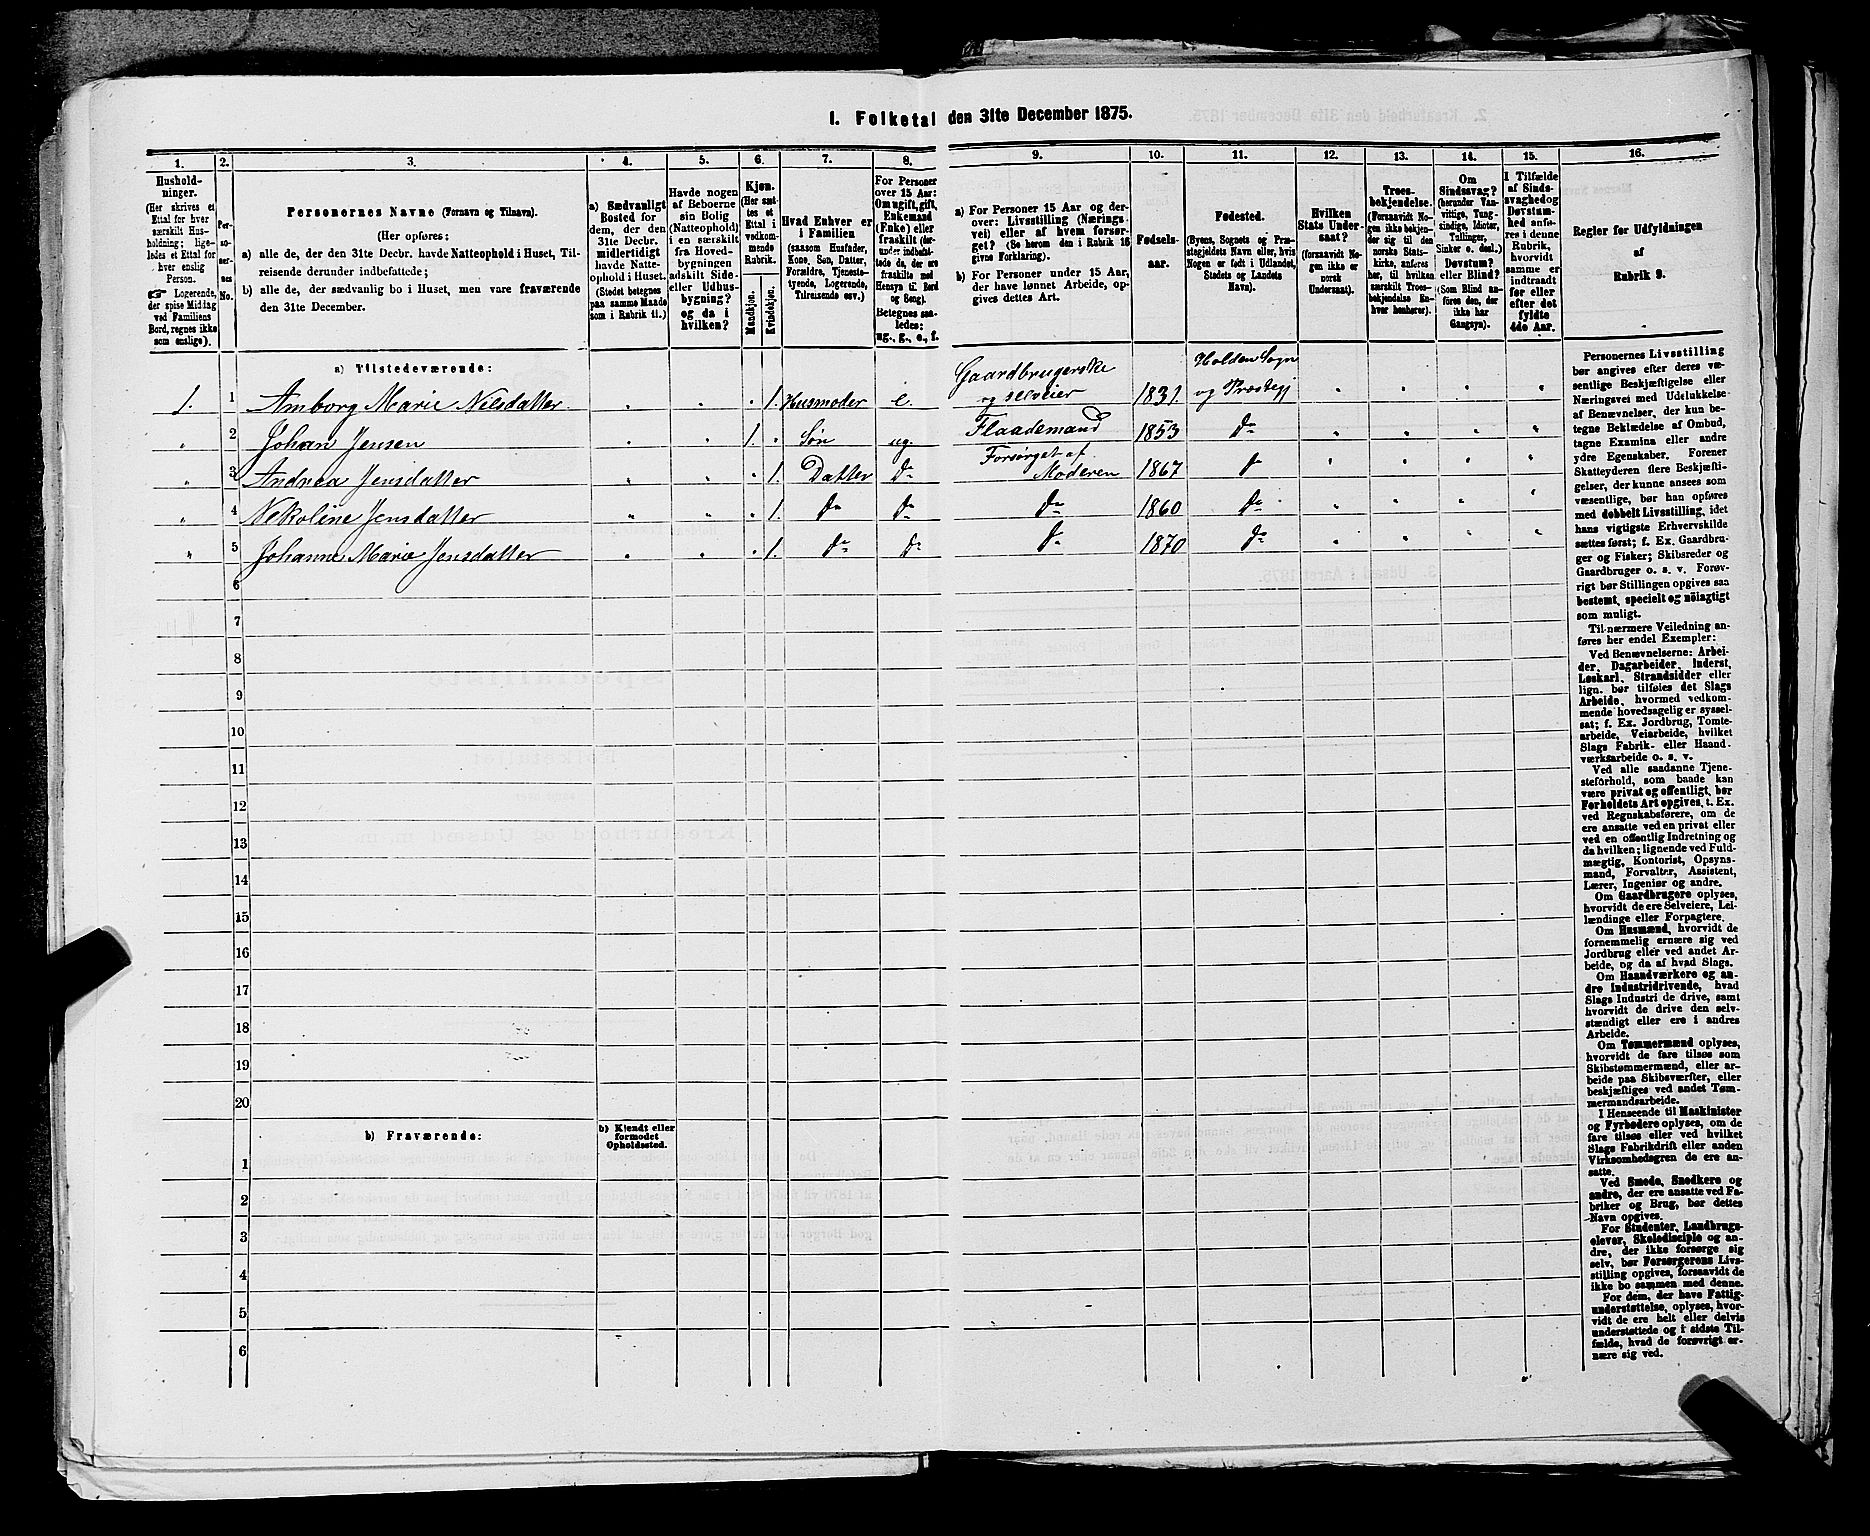 I. Folketal den 31te December 1875.
1. 2. 3. 4. 5. 6. 7. 8. 9. 10. 11. 12. 13. 14. 15. 16.
Husholdninger.
(Her skrives et
Ettal for hver
særskilt Husholdning;
ligeledes et Ettal for
hver enslig
Person.
☞ Logerende,
der spise Middag
ved Familiens
Bord, regnes ikke
som enslige).
Personernes No.
Personernes Navne (Fornavn og Tilnavn).
(Her opføres:
a) alle de, der den 31te Decbr. havde Natteophold i Huset, Tilreisende derunder indbefattede;
b) alle de, der sædvanlig bo i Huset, men vare fraværende
den 31te December.
a) Sædvanligt
Bosted for
dem, der den
31te Decbr.
midlertidigt
havde Natteophold i Huset.
(Stedet betegnes
paa samme Maade
som i Rubrik 11.)
Havde nogen
af Beboerne
sin Bolig
(Natteophold)
i en særskilt
fra Hovedbygningen
adskilt Side-
eller Udhusbygning?
og da i
hvilken?
Kjøn.
(Her sættes et
Ettal i
vedkommende
Rubrik.
Mandkjøn.
Kvindekjøn.
Hvad Enhver er
i Familien
(saasom Husfader,
Kone, Søn, Datter,
Forældre, Tjenestetyende, Logerende,
Tilreisende osv.)
For Personer
over 15 Aar:
Om ugift, gift,
Enkemand
(Enke) eller
fraskilt
Betegnes saaledes:
ug., g., e., f.
a) For Personer 15 Aar og derover: Livsstilling (Næringsvei) eller af hvem forsørget? (Se herom den i Rubrik 16
givne Forklaring).
b) For Personer under 15 Aar,
der have lønnet Arbeide, opgives dettes Art.
Fødselsaar.
Fødested.
(Byens, Sognets og Præstegjeldets Navn eller, hvis
Nogen er født i Udlandet,
Stedets og Landets
Navn).
Hvilken
Stats Undersaat?
(forsaavidt Nogen ikke er
norsk
Undersaat).
Troesbekjendelse.
(Forsaavidt Nogen ikke bekjender sig til den
norske Statskirke, anføres
her, til hvilken
særskilt Troesbekjendelse Enhver henhører).
Om
Sindssvag?
(herunder Vanvittige, Tungsindige, Idioter,
Tullinger,
Sinker o. desl.)
Døvstum?
eller Blind?
(Som Blind anføres den, der
ikke har
Gangsyn).
I Tilfælde
af Sindssvaghed og
Døvstumhed anføres i denne
Rubrik,
hvorvidt
samme er
indtraadt
før eller
efter det
fyldte
4de Aar.
Regler for Udfyldningen
af
Rubrik 9.
a) Tilstedeværende:
1. 1 Amborg Marie Nilsdatter 1. Husmoder e. Gaardbrugerske og selveier 1831. Holden Sogn og Præstegj
" 2 Johan Jensen 1. Søn ug. Flaademand 1853 Do
" 3 Andrea Jensdatter 1. Datter Do Forsørget af Moderen 1867 Do
" 4 Nekoline Jensdatter 1. Do Do Do 1860 Do
" 5 Johanne Marie Jensdatter 1. Do Do Do 1870 Do
6
7
8
9
10
11
12
13
14
15
16
17
18
19
20
b) Fraværende:
b) Kjendt eller
formodet
Opholdssted.
1
2
3
4
5
6
Personernes Livsstilling
bør angives efter deres væsentlige Beskjæftigelse eller
Næringsvei med Udelukkelse
af Benævnelser, der kun betegne Beklædelse af Ombud,
tagne Examina eller andre
ydre Egenskaber. Forener
Skatteyderen flere Beskjæftigelser, der kunne ansees som
væsentlige, bør han opføres
med dobbelt Livsstilling, idet
hans vigtigste Erhvervskilde
sættes først; f. Ex. Gaardbruger og Fisker; Skibsreder og
Gaardbruger o. s. v. Forøvrigt bør Stillingen opgives saa
bestemt, specielt og nöiagtigt
som muligt.
Til nærmere Veiledning anføres her endel Exempler:
Ved Benævnelserne: Arbeider, Dagarbeider, Inderst,
Løskarl, Strandsidder eller
lign. bør tilføies det Slags
Arbeide, hvormed vedkommende hovedsagelig er sysselsat; f. Ex. Jordbrug, Tomtearbeide, Veiarbeide, hvilket
Slags Fabrik- eller Haandværksarbeide o. s. v.
Ved alle saadanne Tjenesteforhold, som baade kan
være privat og offentligt, bør
Forholdets Art opgives, t. Ex.
ved Regnskabsførere, om de
ere ansatte ved en privat eller
ved en offentlig Indretning og
da hvilken; lignende ved Fuldmægtig, Kontorist, Opsynsmand, Forvalter, Assistent,
Lærer, Ingeniør og andre.
Om Gaardbrugere oplyses,
hvorvidt de ere Selveiere, Leilændinge eller Forpagtere.
Om Husmænd, hvorvidt de
fornemmelig ernære sig ved
Jordbrug eller ved andet Arbeide, og da af hvad Slags.
Om Haandværkere og andre Industridrivende, hvad
Slags Industri de drive, samt
hvorvidt de drive den selvstændigt eller ere i andres
Arbeide.
Om Tømmermænd oplyses,
hvorvidt de fare tilsøs som
Skibstømmermænd, eller arbeide paa Skibsværfter, eller
beskjæftiges ved andet Tømmermandsarbeide.
I Henseende til Maskinister
og Fyrbødere oplyses, om de
fare tilsøs eller ved hvilket
Slags Fabrikdrift eller anden
Virksomhedsgren de ere ansatte.
Ved Smede, Snedkere og
andre, der ere ansatte ved Fabriker og Brug, bør dettes
Navn opgives.
For Studenter, Landbrugselever, Skoledisciple og andre, der ikke forsørge sig
selv, bør Forsørgerens Livsstilling opgives, forsaavidt de
ikke bo sammen med denne.
For dem, der have Fattigunderstøttelse, oplyses, hvorvidt de ere helt eller delvis
understøttede og i sidste Tilfælde, hvad de forøvrigt ernære sig ved.